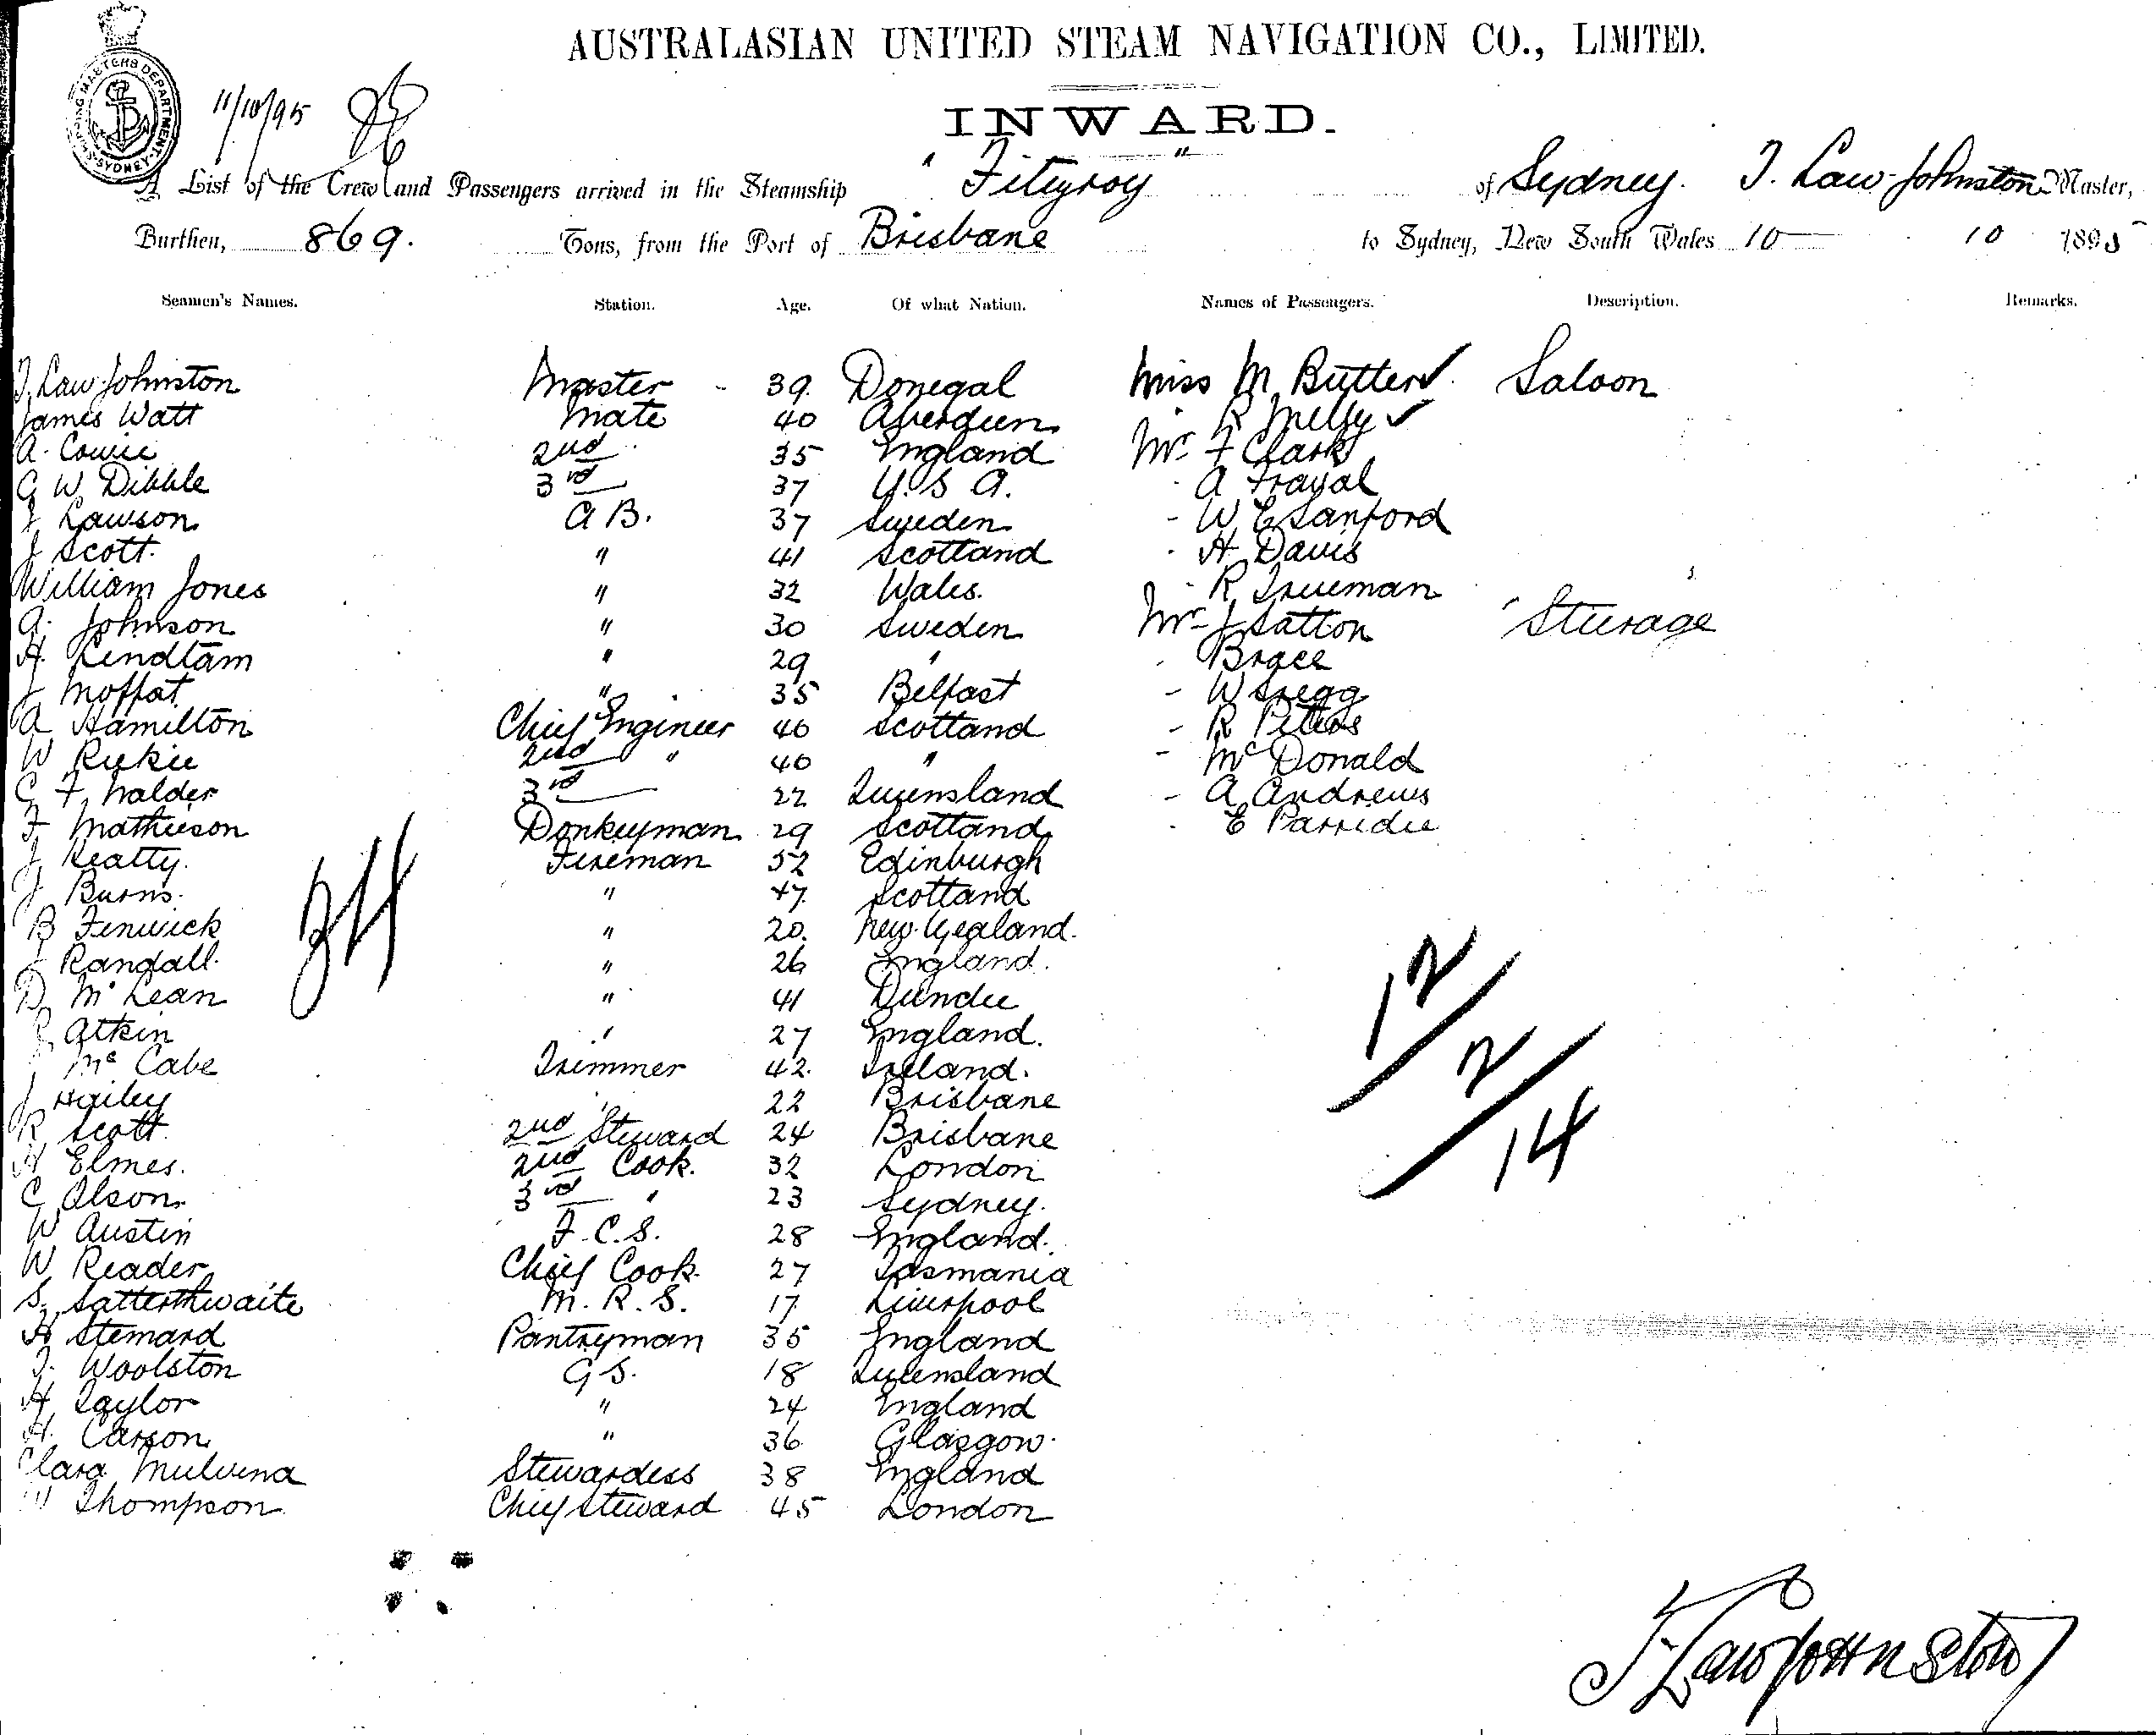 AUSTRALASIAN UNITED STEAM NAVIGATION CO., LIMITED.
INWARD.
SHIPPING MASTERS DEPARTMENT SYDNEY
11/10/95
A List of the Crew and Passengers arrived in the Steamship "Fitzroy" of Sydney. T. Law-Johnston Master,
Burthen, 869. Tons, from the Port of Brisbane to Sydney, New South Wales 10 10 1895
Seamen's Names. Station. Age. Of what Nation. Names of Passengers. Description. Remarks.
T. Law-Johnston Master - 39. Donegal Miss M. Butter Saloon
James Watt Mate 40 Aberdeen " R Melly
A. Cowie 2nd 35 England Mr F Clark
G W Dibble 3rd 37 U.S A. " A Frayal
J Lawson A B. 37 Sweden - W E Sanford
J Scott. " 41 Scotland - H Davis
William Jones " 32 Wales. - R Trueman
A. Johnson " 30 Sweden Mr J Satton Steerage
H. Lindtam " 29 " - Brace
J Moffat. " 35 Belfast - W Gregg
A Hamilton Chief Engineer 46 Scotland - R Peters
W Rickie 2nd " 40 " - McDonald
C F Nalder 3rd 22 Queensland - A Andrews
F Mathieson Donkeyman 29 Scotland - E
J Beatty. Fireman 52 Edinburgh
J Burns. " 47. Scotland
B Fenwick " 20. New Zealand.
J Randall. " 26 England.
D McLean " 41 Dundee
Atkin " 27 England.
McCabe Trimmer 42. Ireland.
J Hailey " 22 Brisbane
R Scott. 2nd Steward 24 Brisbane
H Elmes. 2nd Cook. 32 London
C Olson. 3rd " 23 Sydney.
W Austin F.C.S. 28 England.
W Reader Chief Cook. 27 Tasmania
S. Satterthwaite M.R.S. 17. Liverpool
H Stemard Pantryman 35 England
T. Woolston G S. 18 Queensland
H Taylor " 24 England
H. Carson " 36 Glasgow.
Clara Mulvena Stewardess 38 England
W Thompson Chief Steward 45 London
34
12
2
14
T. Law Johnston